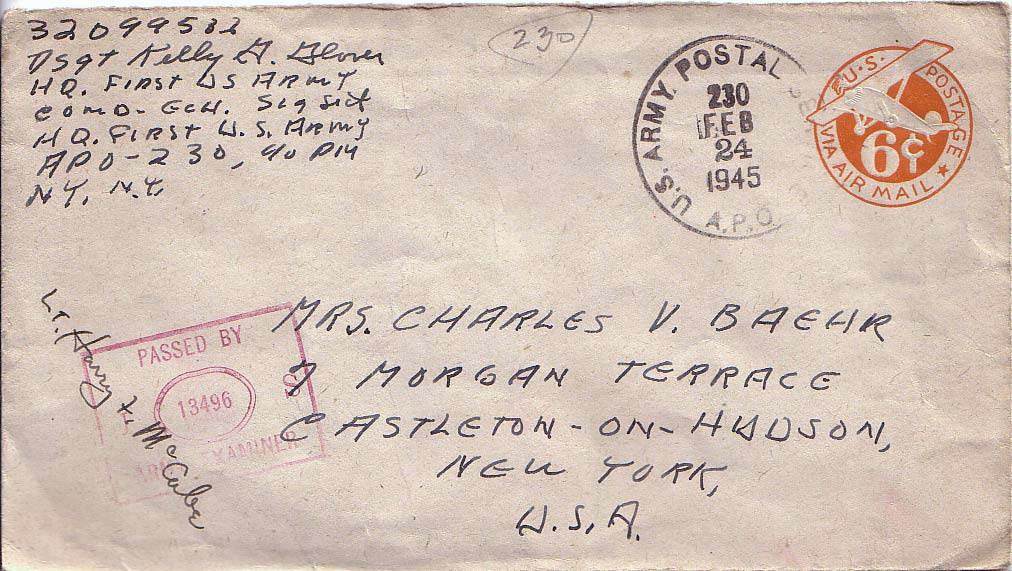 32099582
Kelly G. Glover
HQ. FIRST US ARMY
COMD- ECH. Sig Sect
HQ. FIRST U.S. ARMY
APO-230, % P.M
NY, N.Y.
230
U.S. ARMY POSTAL
230
FEB
24
1945
A.P.O.
U.S. POSTAGE
6¢
VIA AIR MAIL
MRS. CHARLES V. BAEHR
7 MORGAN TERRACE
CASTLETON-ON-HUDSON,
NEW YORK,
U.S.A.
PASSED BY
13496
ARMY EXAMINER
Lt. Harry F. McCabe